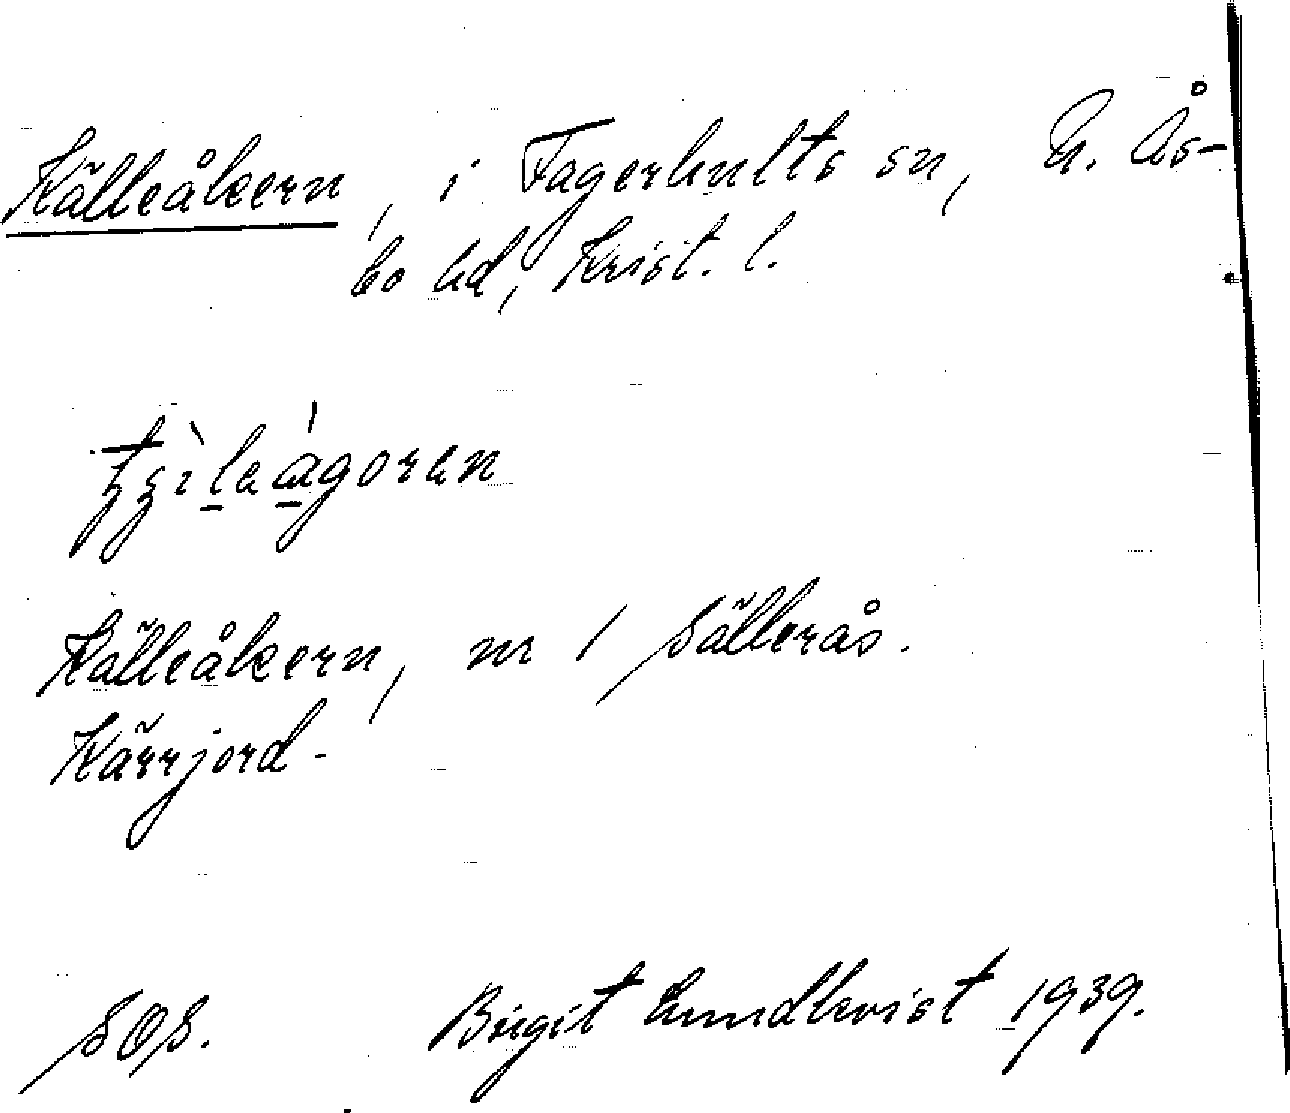 Källeåkern, i Fagerhults sn, N. Ås-
bo hd, Krist. l.
Källeåkern, nr 1 Sällerås.
Kärrjord.
SOS. Birgit Lundkvist 1939.